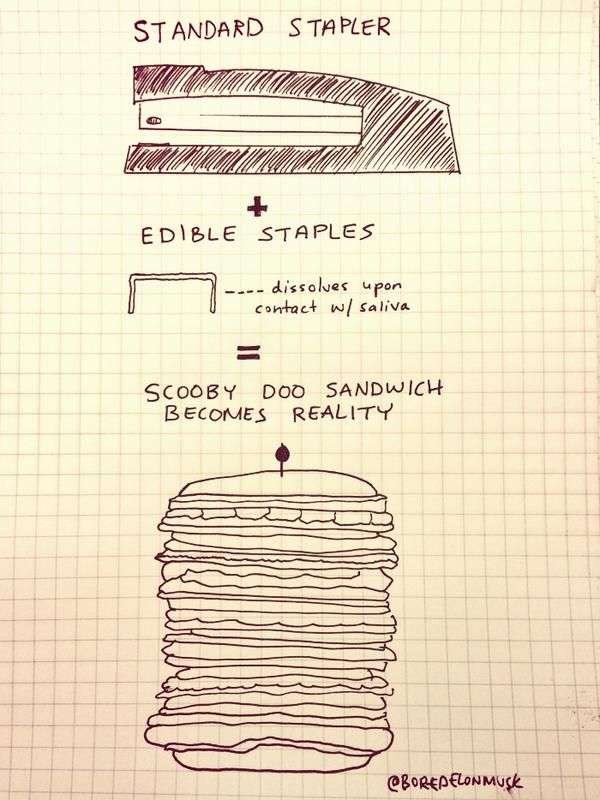 STANDARD STAPLER
+
EDIBLE STAPLES
---- dissolves upon
contact w/ saliva
=
SCOOBY DOO SANDWICH
BECOMES REALITY
@BOREDELONMUSK